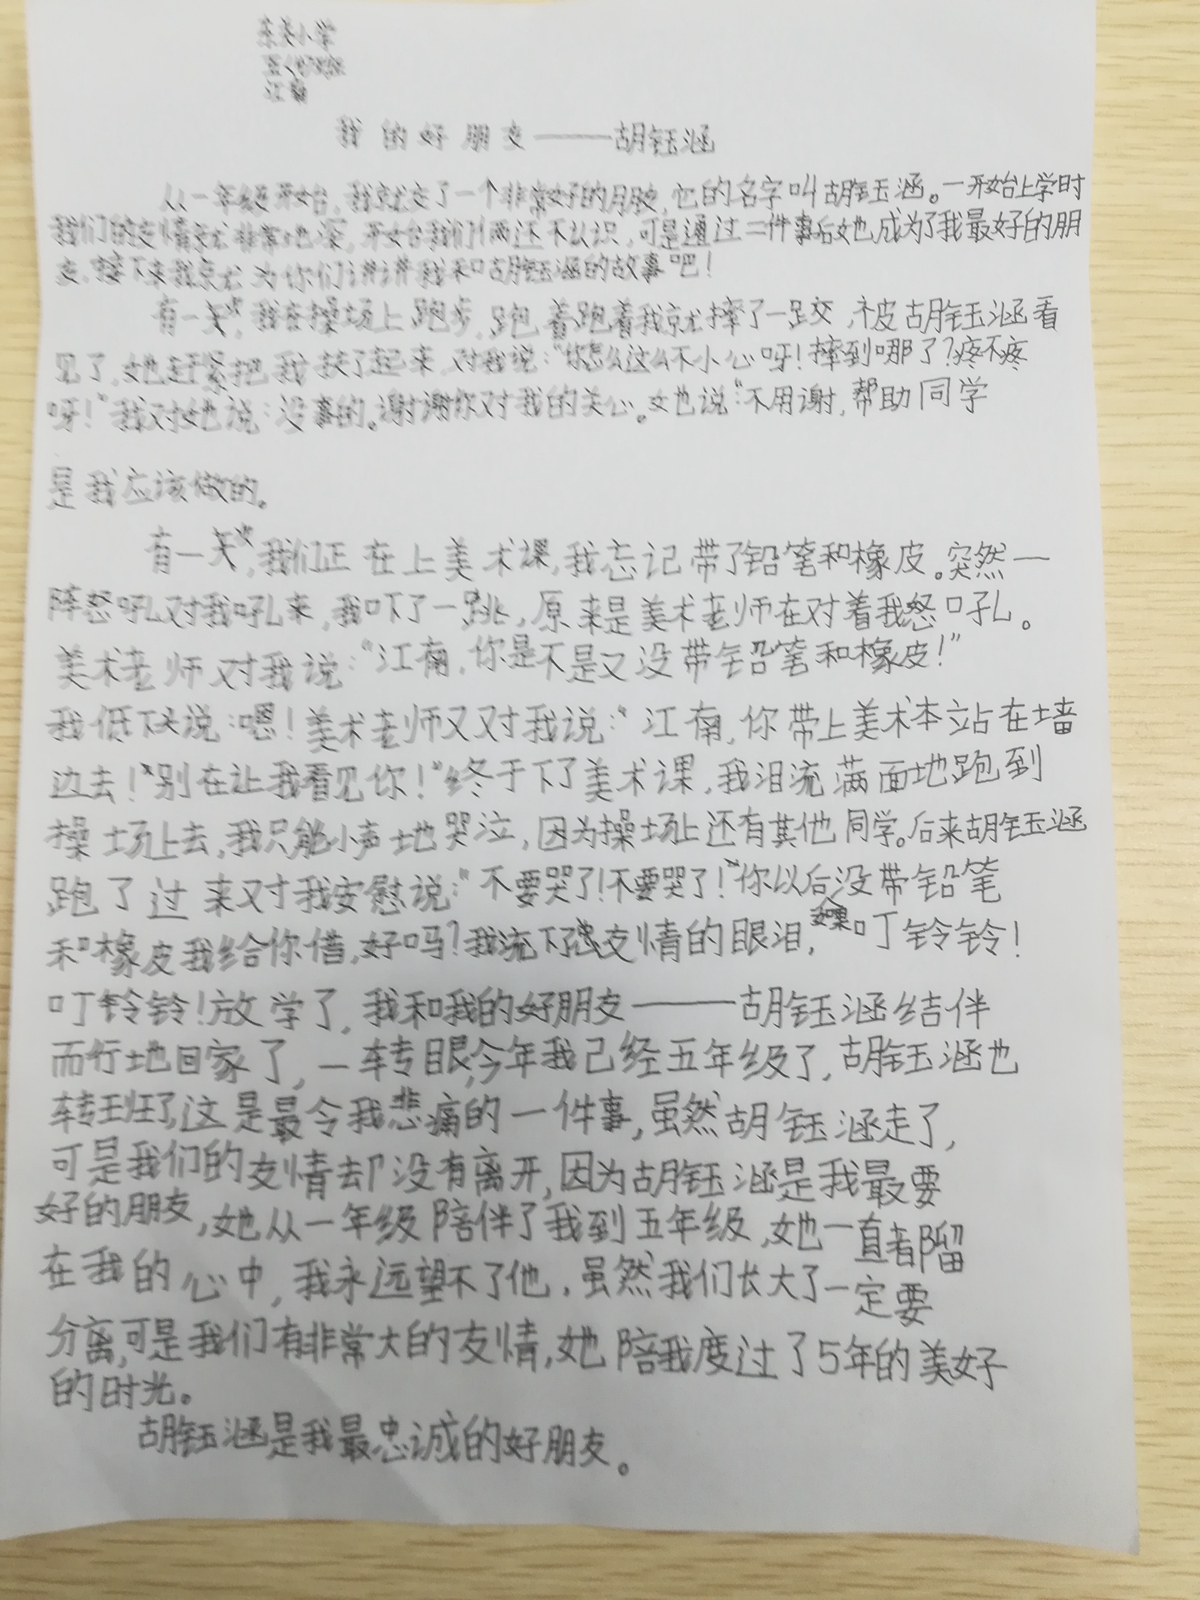 小学
江南
我的好朋友——胡钰涵
从一年级开始,我就交了一个非常好的朋友,它的名字叫胡钰涵。一开始上学时
我们的友情就非常地深,开始我们俩还不认识,可是通过二件事后她成为了我最好的朋
友,接下来我就为你们讲讲我和胡钰涵的故事吧!
有一天,我在操场上跑步,跑着跑着我就摔了一跤,被胡钰涵看
见了,她赶紧把我扶了起来,对我说:“你怎么这么不小心呀!摔到哪了?疼不疼
呀!”我对她说:没事的。谢谢你对我的关心。她说“不用谢,帮助同学
是我应该做的。
有一天,我们正在上美术课,我忘记带了铅笔和橡皮。突然一
阵怒吼对我吼来,我吓了一跳,原来是美术老师在对着我怒吼。
美术老师对我说:“江南,你是不是又没带铅笔和橡皮!”
我低下头说:嗯!美术老师又对我说:“江南,你带上美术本站在墙
边去!”别在让我看见你!”终于下了美术课,我泪流满面地跑到
操场上去,我只能小声地哭泣,因为操场上还有其他同学。后来胡钰涵
跑了过来对我安慰说:“不要哭了!不要哭了!”你以后没带铅笔
和橡皮我给你借,好吗?我流下了友情的眼泪,叮铃铃!
叮铃铃!放学了,我和我的好朋友——胡钰涵结伴
而行地回家了,一转眼,今年我已经五年级了,胡钰涵也
转班了,这是最令我悲痛的一件事,虽然胡钰涵走了,
可是我们的友情却没有离开,因为胡钰涵是我最要
好的朋友,她从一年级陪伴了我到五年级,她一直都留
在我的心中,我永远望不了他,虽然我们长大了一定要
分离,可是我们有非常大的友情,她陪我度过了5年的美好
的时光。
胡钰涵是我最忠诚的好朋友。